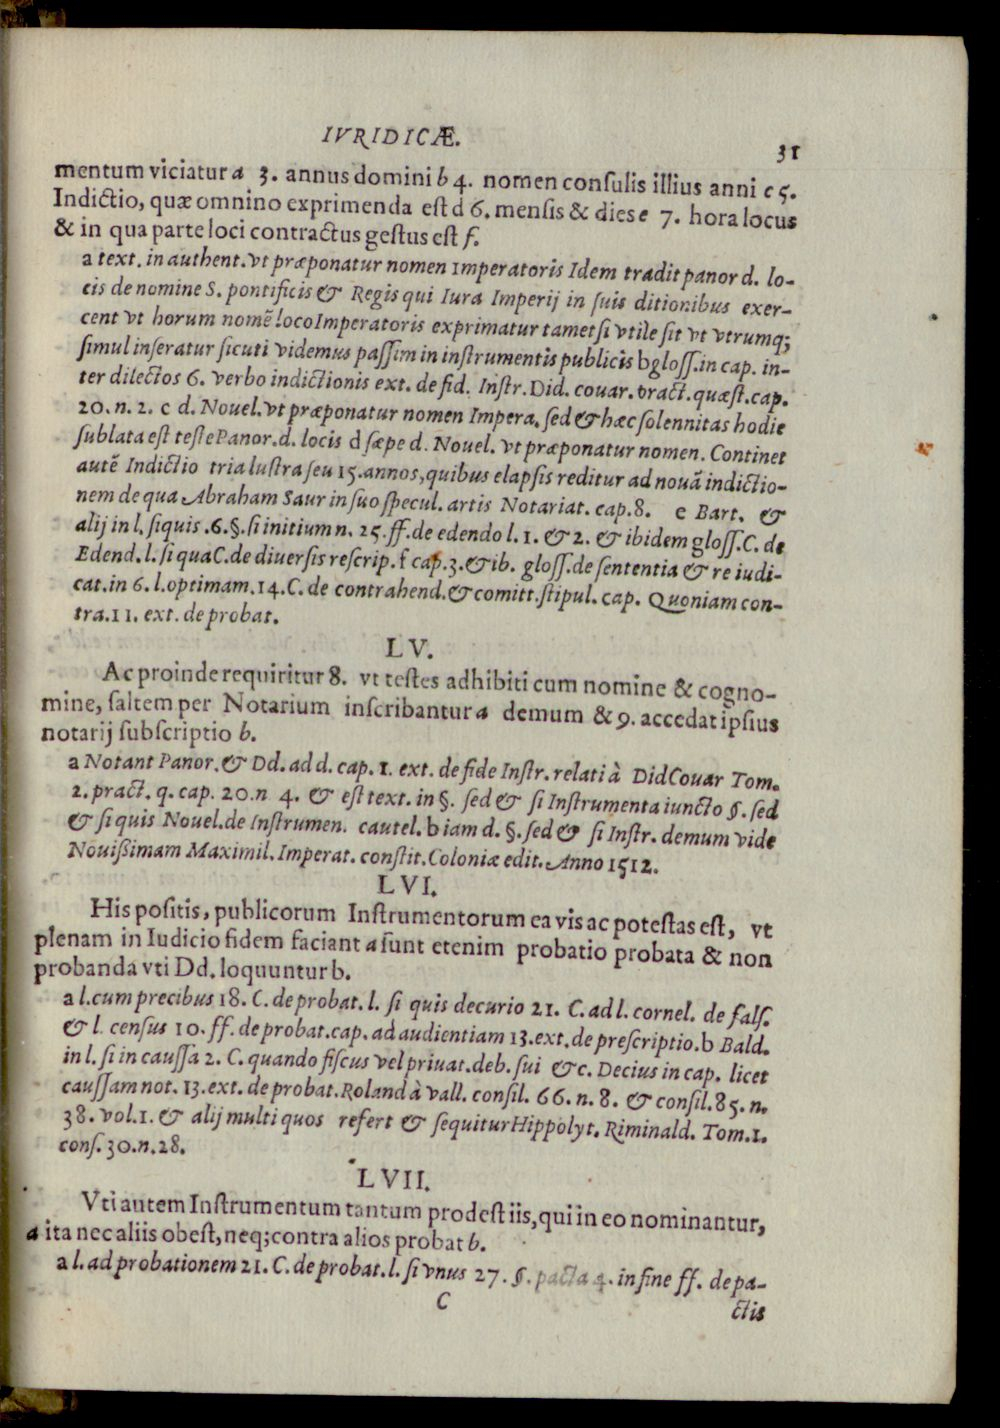 IVRIDICÆ.
31
mentum viciatur a 3. annus domini b 4. nomen conſulis illius anni c 5.
Indictio, quæ omnino exprimenda eſt d 6. menſis & dies e 7. hora locus
& in qua parte loci contractus geſtus eſt f.
a text. in authent. vt præponatur nomen Imperatoris Idem tradit panor d. lo-
cis de nomine S. pontificis & Regis qui Iura Imperij in ſuis ditionibus exer-
cent vt horum nomē loco Imperatoris exprimatur tametſi vtile ſit vt vtrumq;
ſimul inſeratur ſicuti videmus paſſim in inſtrumentis publicis b gloſſ. in cap. in-
ter dilectos 6. verbo indictionis ext. de fid. Inſtr. Did. couar. pract. quæſt. cap.
20. n. 2. c d. Nouel. vt præponatur nomen Impera. ſed & hæc ſolennitas hodie
ſublata eſt teſte Panor. d. locis d ſæpe d. Nouel. vt præponatur nomen. Continet
autē Indictio tria luſtra ſeu 15. annos, quibus elapſis reditur ad nouā indictio-
nem de qua Abraham Saur in ſuo ſpecul. artis Notariat. cap. 8. e Bart. &
alij in l. ſi quis .6. §. ſi initium n. 25. ff. de edendo l. 1. & 2. & ibidem gloſſ. C. de
Edend. l. ſi qua C. de diuerſis reſcrip. f cap. 3. & ib. gloſſ. de ſententia & re iudi-
cat. in 6. l. optimam. 14. C. de contrahend. & comitt. ſtipul. cap. Quoniam con-
tra. 11. ext. de probat.
LV.
Ac proinde requiritur 8. vt teſtes adhibiti cum nomine & cogno-
mine, ſaltem per Notarium inſcribantur a demum & 9. accedat ipſius
notarij ſubſcriptio b.
a Notant Panor. & Dd. ad d. cap. 1. ext. de fide Inſtr. relati à Did Couar Tom.
2. pract. q. cap. 20. n 4. & eſt text. in §. ſed & ſi Inſtrumenta iuncto §. ſed
& ſi quis Nouel. de Inſtrumen. cautel. b iam d. §. ſed & ſi Inſtr. demum vide
Nouißimam Maximil. Imperat. conſtit. Coloniæ edit. Anno 1512.
LVI.
His poſitis, publicorum Inſtrumentorum ea vis ac poteſtas eſt, vt
plenam in Iudicio fidem faciant a ſunt etenim probatio probata & non
probanda vti Dd. loquuntur b.
a l. cum precibus 18. C. de probat. l. ſi quis decurio 21. C. ad l. cornel. de falſ.
& l. cenſus 10. ff. de probat. cap. ad audientiam 13. ext. de preſcriptio. b Bald.
in l. ſi in cauſſa 2. C. quando fiſcus vel priuat. deb. ſui &c. Decius in cap. licet
cauſſam not. 13. ext. de probat. Roland à vall. conſil. 66. n. 8. & conſil. 85. n.
38. vol. 1. & alij multi quos refert & ſequitur Hippolyt. Riminald. Tom. 1.
conſ. 30. n. 28.
LVII.
Vti autem Inſtrumentum tantum prodeſt iis, qui in eo nominantur,
a ita nec aliis obeſt, neq; contra alios probat b.
a l. ad probationem 21. C. de probat. l. ſi vnus 27. §. pacta 4. in fine ff. de pa-
C
ctis